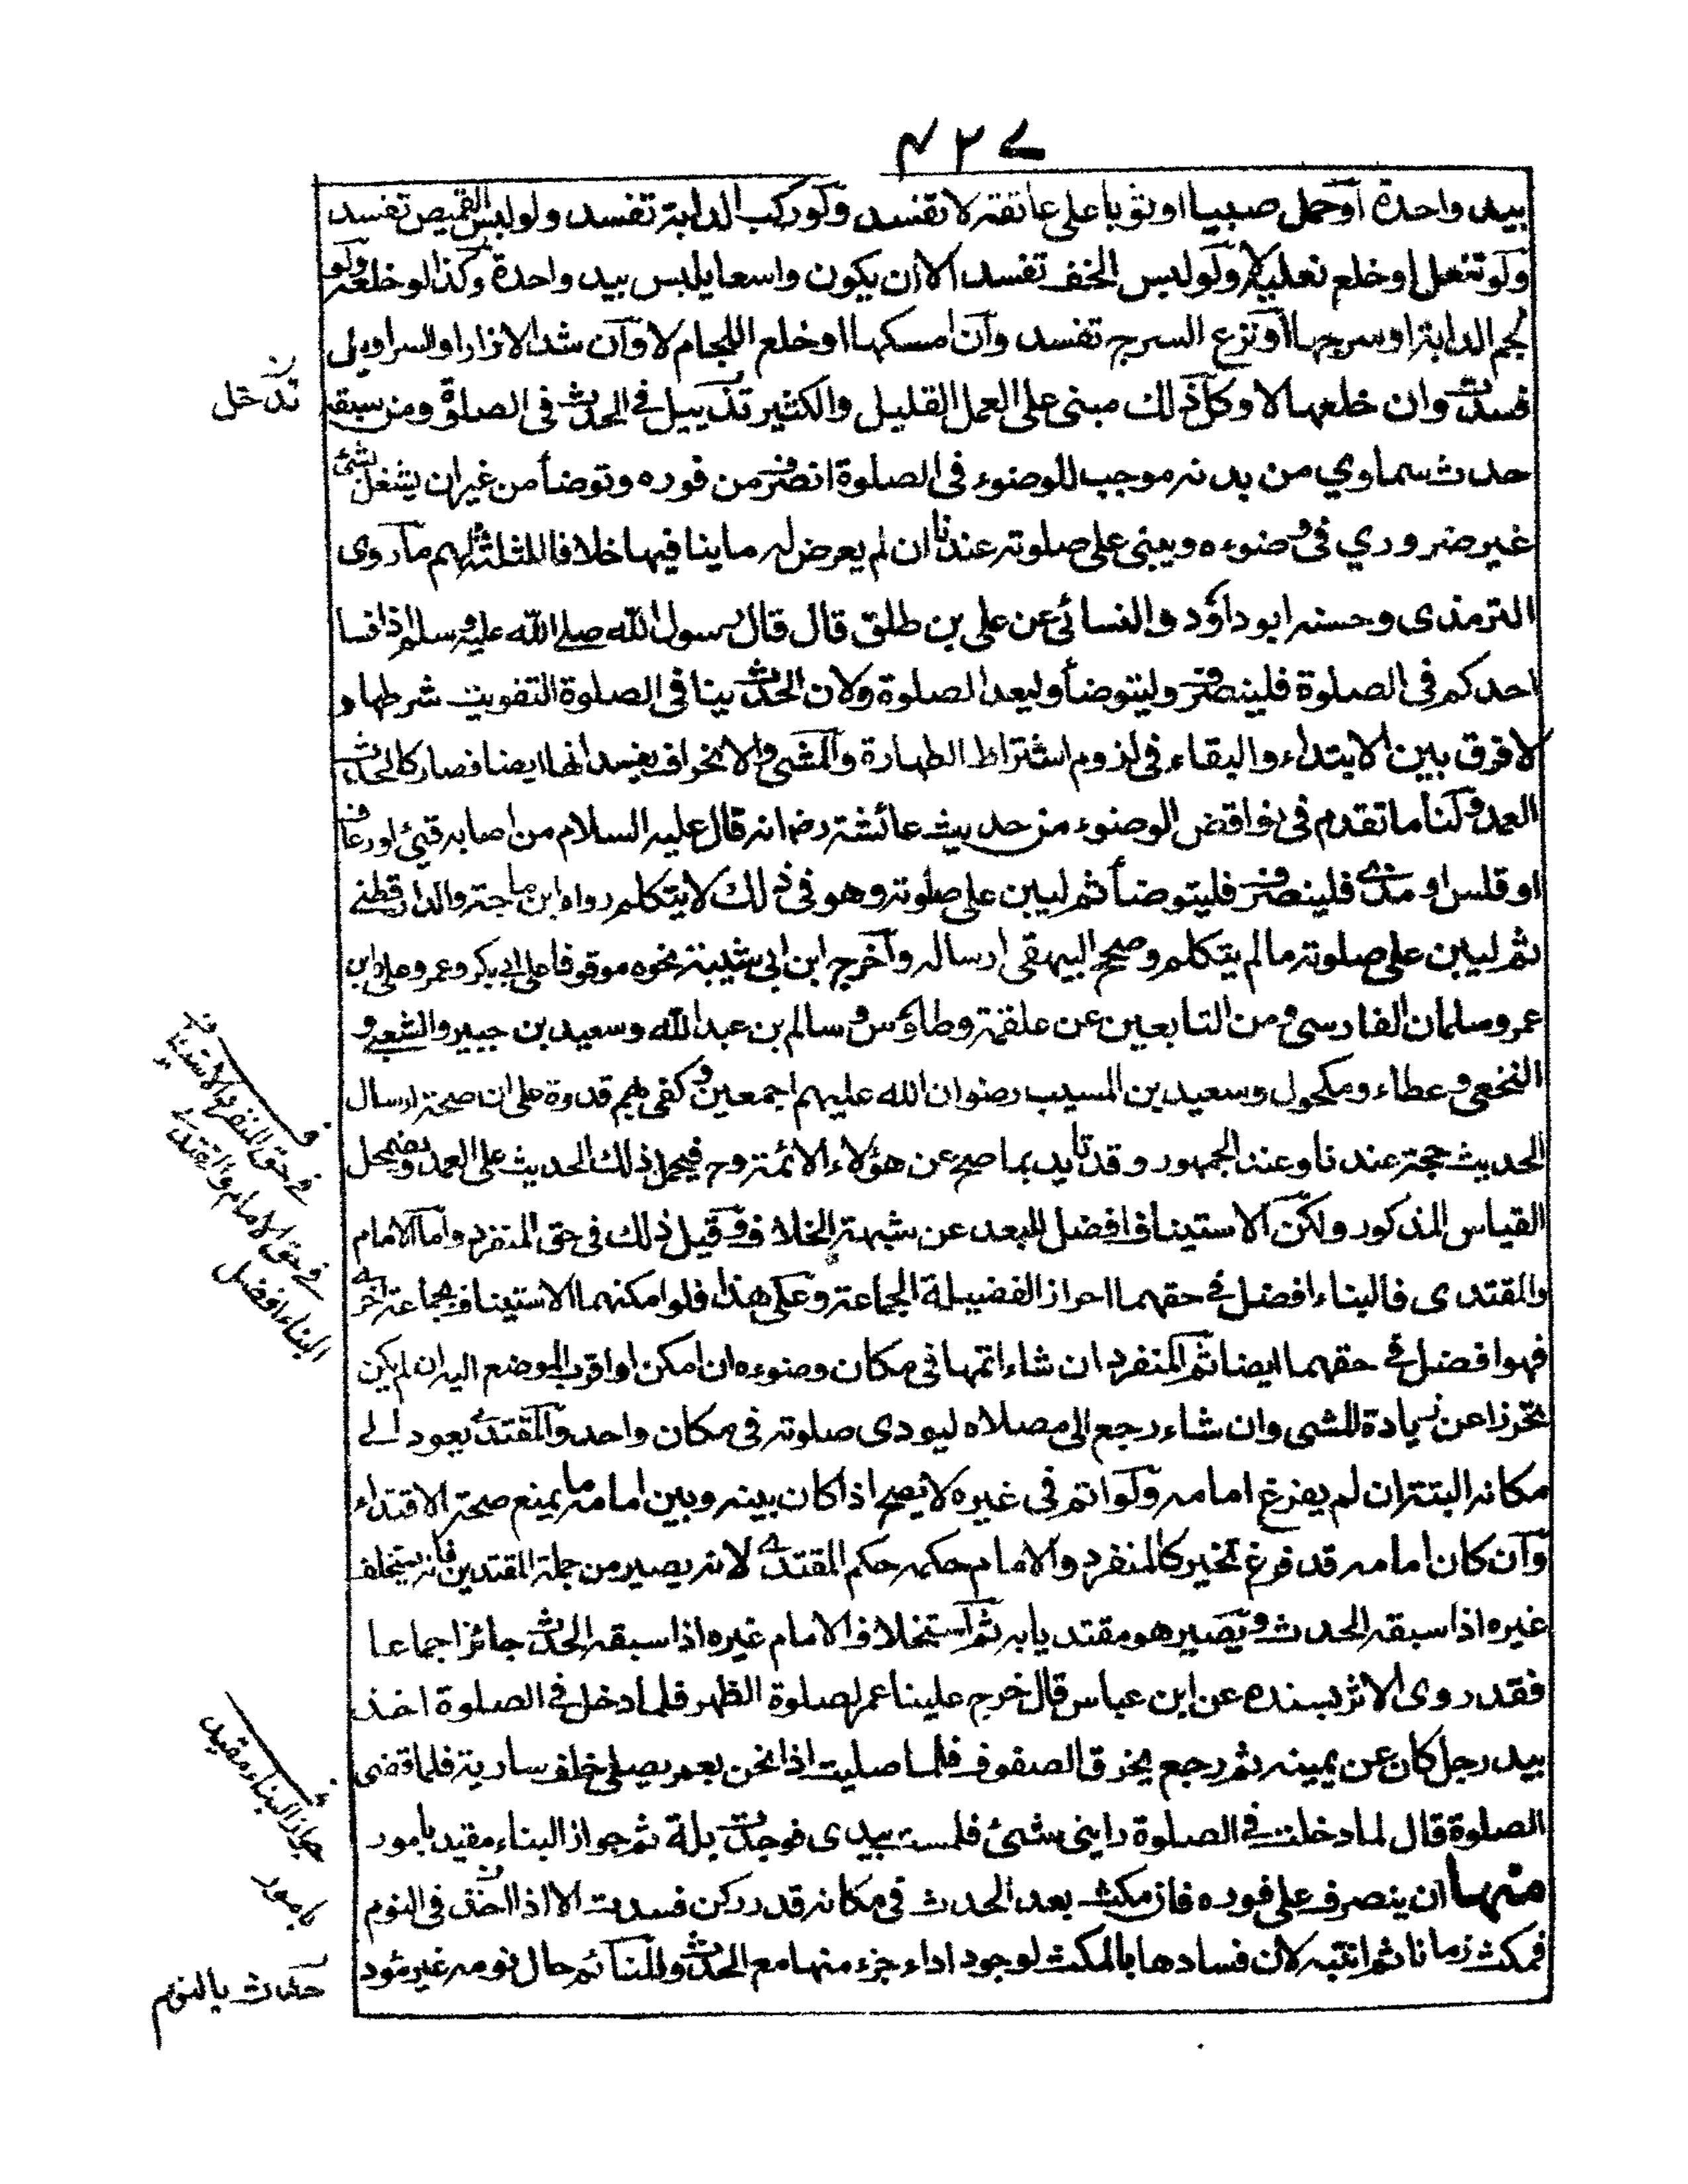 ۴۲۷
بيد واحدة او حمل صبيا او ثوبا على عاتقه لا تفسد ولو ركب الدابة تفسد ولو لبس القميص تفسد
ولو تنعل او خلع نعليه لا ولو لبس الخف تفسد الا ان يكون واسعا يلبس بيد واحدة وكذا لو خلعه ولو
لجم الدابة او سرجها او نزع السرج تفسد وان امسكها او خلع اللجام لا وان شد الازار او السراويل
فسدت وان خلعها لا وكل ذلك مبنى على العمل القليل والكثير تذييل فى الحدث فى الصلوة ومن سبقه
حدث سماوي من بدنه موجب للوضوء فى الصلوة انصرف من فوره وتوضأ من غير ان يشغل بشئ
غير ضروري فى وضوءه ويبنى على صلوته عندنا ان لم يعرض له ما ينافيها خلافا للثلثة لهم ما روى
الترمذى وحسنه ابو داؤد والنسائى عن على بن طلق قال قال رسول الله صلے الله عليه وسلم اذا فسا
احدكم فى الصلوة فلينصرف وليتوضأ وليعد الصلوة ولان الحدث ينافى الصلوة لتفويت شرطها و
لا فرق بين الابتداء والبقاء فى لزوم اشتراط الطهارة والمشى والانحراف يفسدانها ايضا فصار كالحدث
العمد ولنا ما تقدم فى نواقض الوضوء من حديث عائشة رض انه قال عليه السلام من اصابه قيئ او رعاف
او قلس او مذى فلينصرف فليتوضأ ثم ليبن على صلوته وهو فى ذلك لا يتكلم رواه ابن ماجة والدارقطنے
ثم ليبن على صلوته ما لم يتكلم وصحح البيهقى ارساله وآخرج ابن ابى شيبة نحوه موقوفا على ابى بكر وعمر وعلى وابن
عمر وسلمان الفارسى ومن التابعين عن علقمة وطاؤس وسالم بن عبد الله وسعيد بن جبير والشعبے و
النخعى وعطاء ومكحول وسعيد بن المسيب رضوان الله عليهم اجمعين وكفى بهم قدوة على ان صحة ارسال
الحديث حجة عندنا وعند الجمهور وقد تأيد بما صح عن هؤلاء الائمة وح فيحمل ذلك الحديث على العمد ويضمحل
القياس المذكور ولكن الاستيناف افضل للبعد عن شبهة الخلاف وقيل ذلك فى حق المنفرد واما الامام
والمقتدى فالبناء افضل فى حقهما احراز الفضيلة الجماعة وعلى هذا فلو امكنهما الاستيناف بجماعة اخرى
فهو افضل فى حقهما ايضا ثم المنفرد ان شاء اتمها فى مكان وضوءه ان امكن او اقرب الموضع اليه ان لم يكن
تحرزا عن زيادة المشى وان شاء رجع الى مصلاه ليودى صلوته فى مكان واحد والمقتدى يعود الے
مكانه البتة ان لم يفرغ امامه ولو اتم فى غيره لا يصح اذا كان بينه وبين امامه ما يمنع صحة الاقتداء
وان كان امامه قد فرغ تخير كالمنفرد والامام حكمه حكم المقتدى لانه يصير من جملة المقتدين فانه يستخلف
غيره اذا سبقه الحدث ويصير هو مقتديا به ثم استخلاف الامام غيره اذا سبقه الحدث جائز اجماعا
فقد روى الاثر بسنده عن ابن عباس قال خرج علينا عمر لصلوة الظهر فلما دخل فى الصلوة اخذ
بيد رجل كان عن يمينه ثم رجع يخرق الصفوف فلما صليت اذا نحن بعمر يصلى خلف سارية فلما قضى
الصلوة قال لما دخلت فى الصلوة رابنى شيئ فلمست بيدى فوجدت بلة ثم جواز البناء مقيد بامور
منها ان ينصرف على فوره فان مكث بعد الحدث فى مكانه قدر ركن فسدت الا اذا احدث فى النوم
فمكث زمانا ثم انتبه لان فسادها بالمكث لوجود اداء جزء منها مع الحدث والنائم حال نومه غير مؤد
ف
فى حق المنفرد الاستيناف
فى حق الامام والمقتدى
البناء افضل
جواز البناء مقيد
بامور
حدث بالنوم